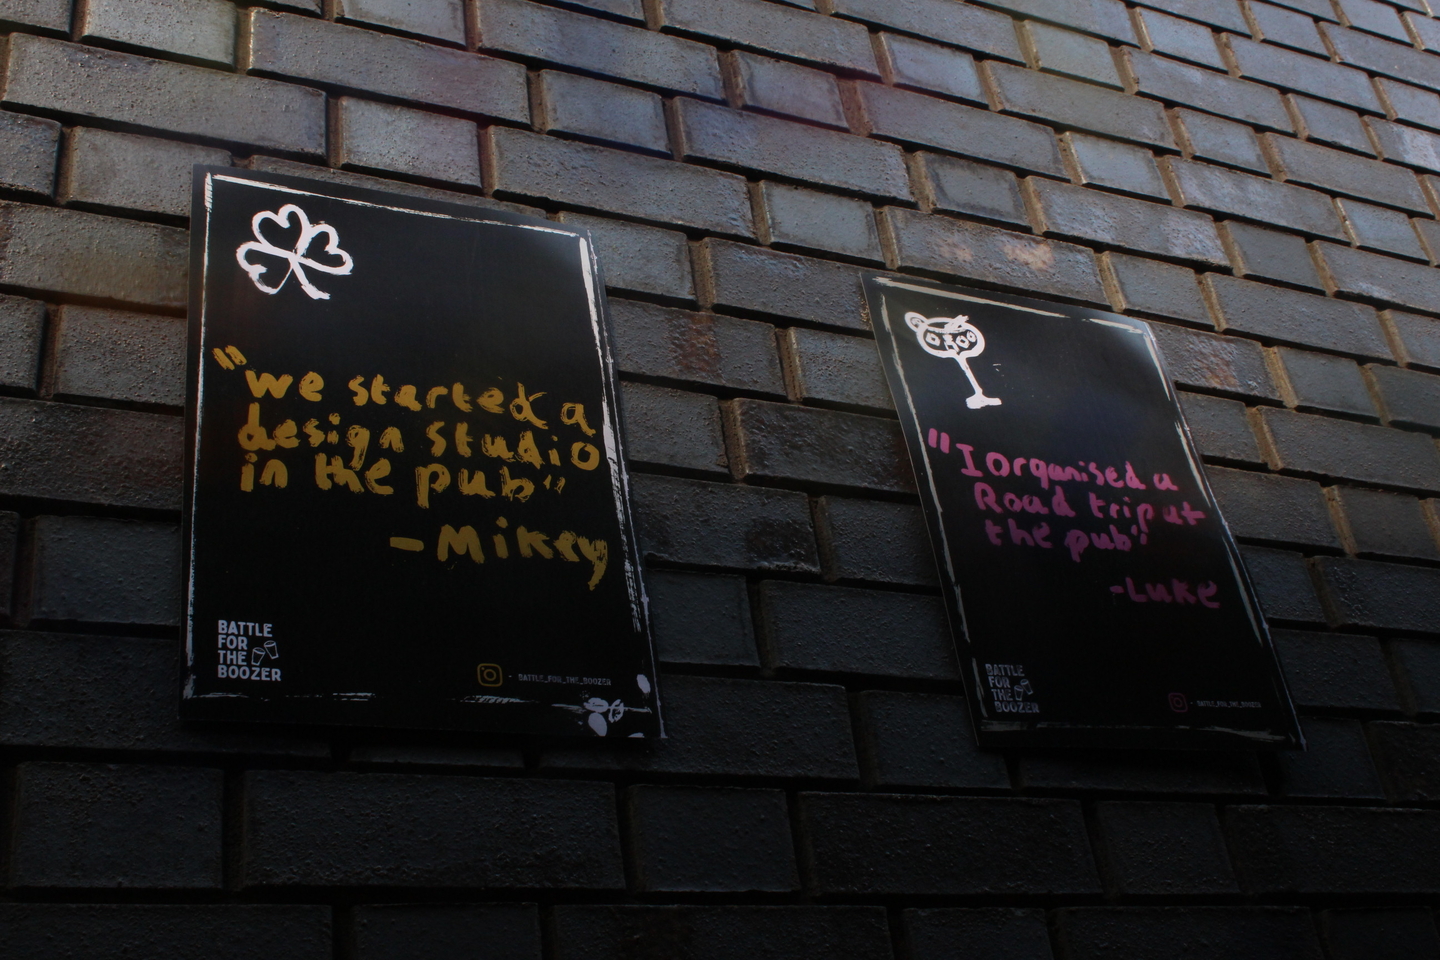 "we started a
design studio
in the pub"
- Mikey
BATTLE
FOR
THE
BOOZER
- BATTLE_FOR_THE_BOOZER
"I organised a
Road trip at
the pub"
- Luke
BATTLE
FOR
THE
BOOZER
- BATTLE_FOR_THE_BOOZER